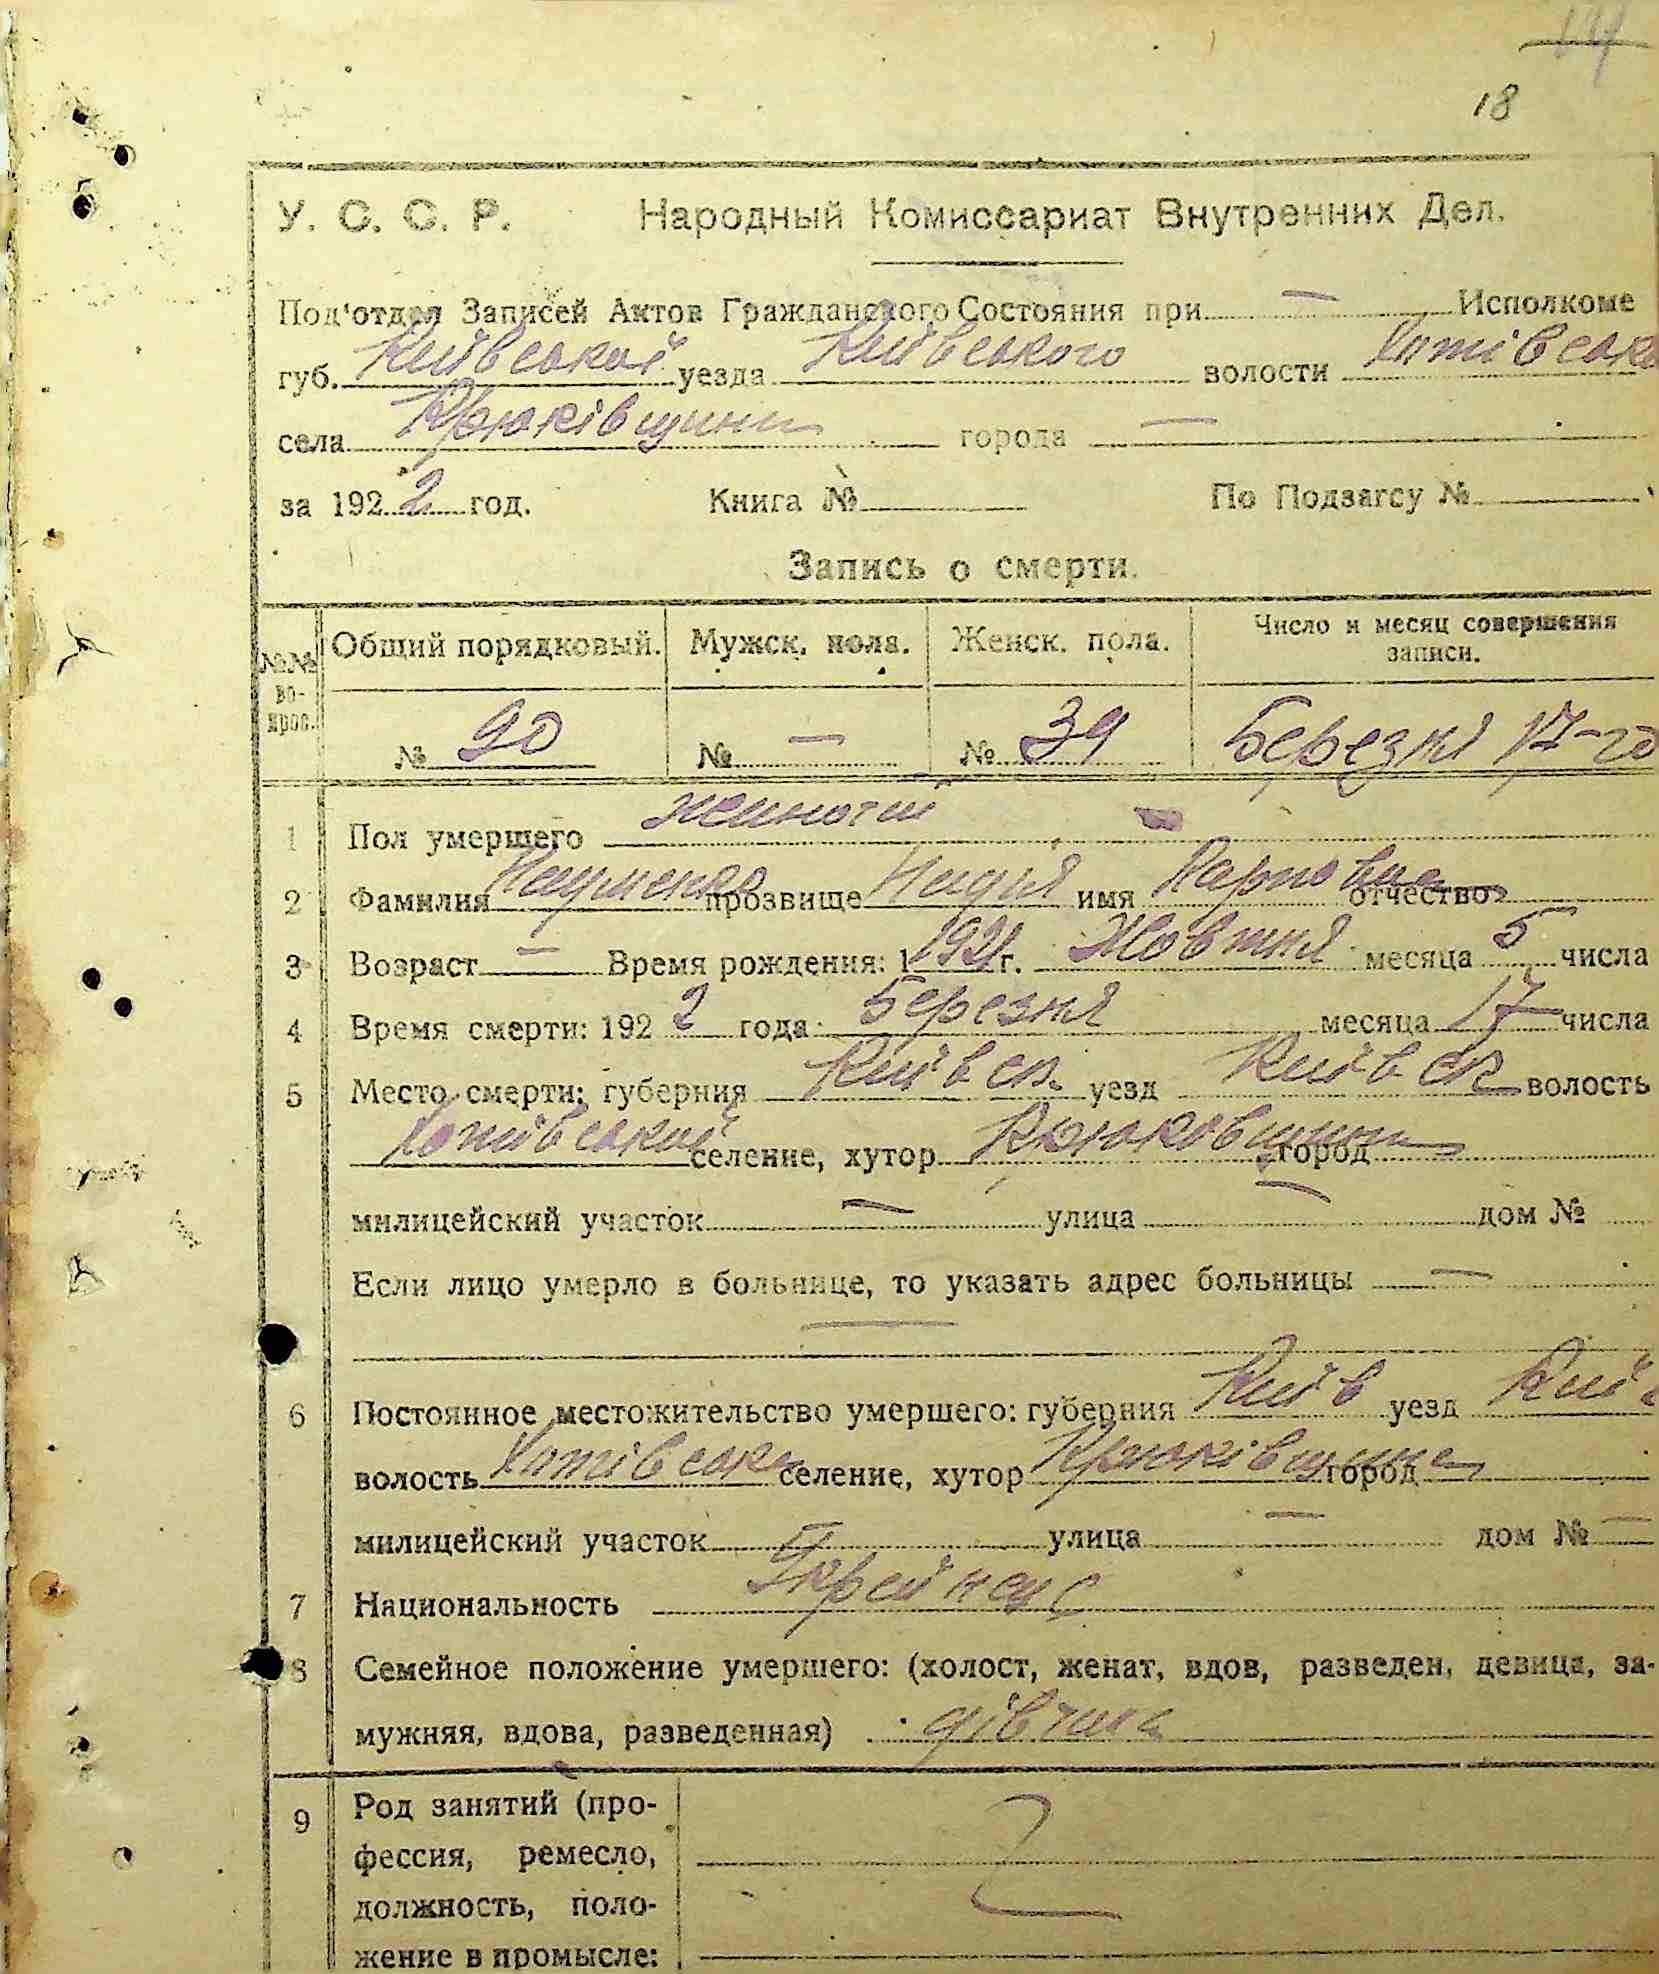 14
18
У. С. С. Р. Народный Комиссариат Внутренних Дел.
Под'отдел Записей Актов Гражданского Состояния при — Исполкоме
губ. Київської уезда Київського волости Хотівсько
села Крюківщини города —
за 1922 год. Книга № По Подзагсу №
Запись о смерти.
№№ во-прос. Общий порядковый. Мужск. пола. Женск. пола. Число и месяц совершения записи.
№ 90 № — № 39 Березня 17-го
1 Пол умершего жиночий
2 Фамилия Науменко прозвище Надія имя Карповна отчество
3 Возраст — Время рождения: 1 1921 г. Жовтня месяца 5 числа
4 Время смерти: 1922 года Березня месяца 17 числа
5 Место смерти: губерния Київск. уезд Київск волость
Хотівської селение, хутор Крюковщини город
милицейский участок — улица — дом №
Если лицо умерло в больнице, то указать адрес больницы —
—
6 Постоянное местожительство умершего: губерния Київ уезд Київ
волость Хотівська селение, хутор Крюківщина город
милицейский участок — улица — дом № —
7 Национальность Украйнец
8 Семейное положение умершего: (холост, женат, вдов, разведен, девица, за-
мужняя, вдова, разведенная) дівчина
9 Род занятий (про-
фессия, ремесло,
должность, поло-
жение в промысле: